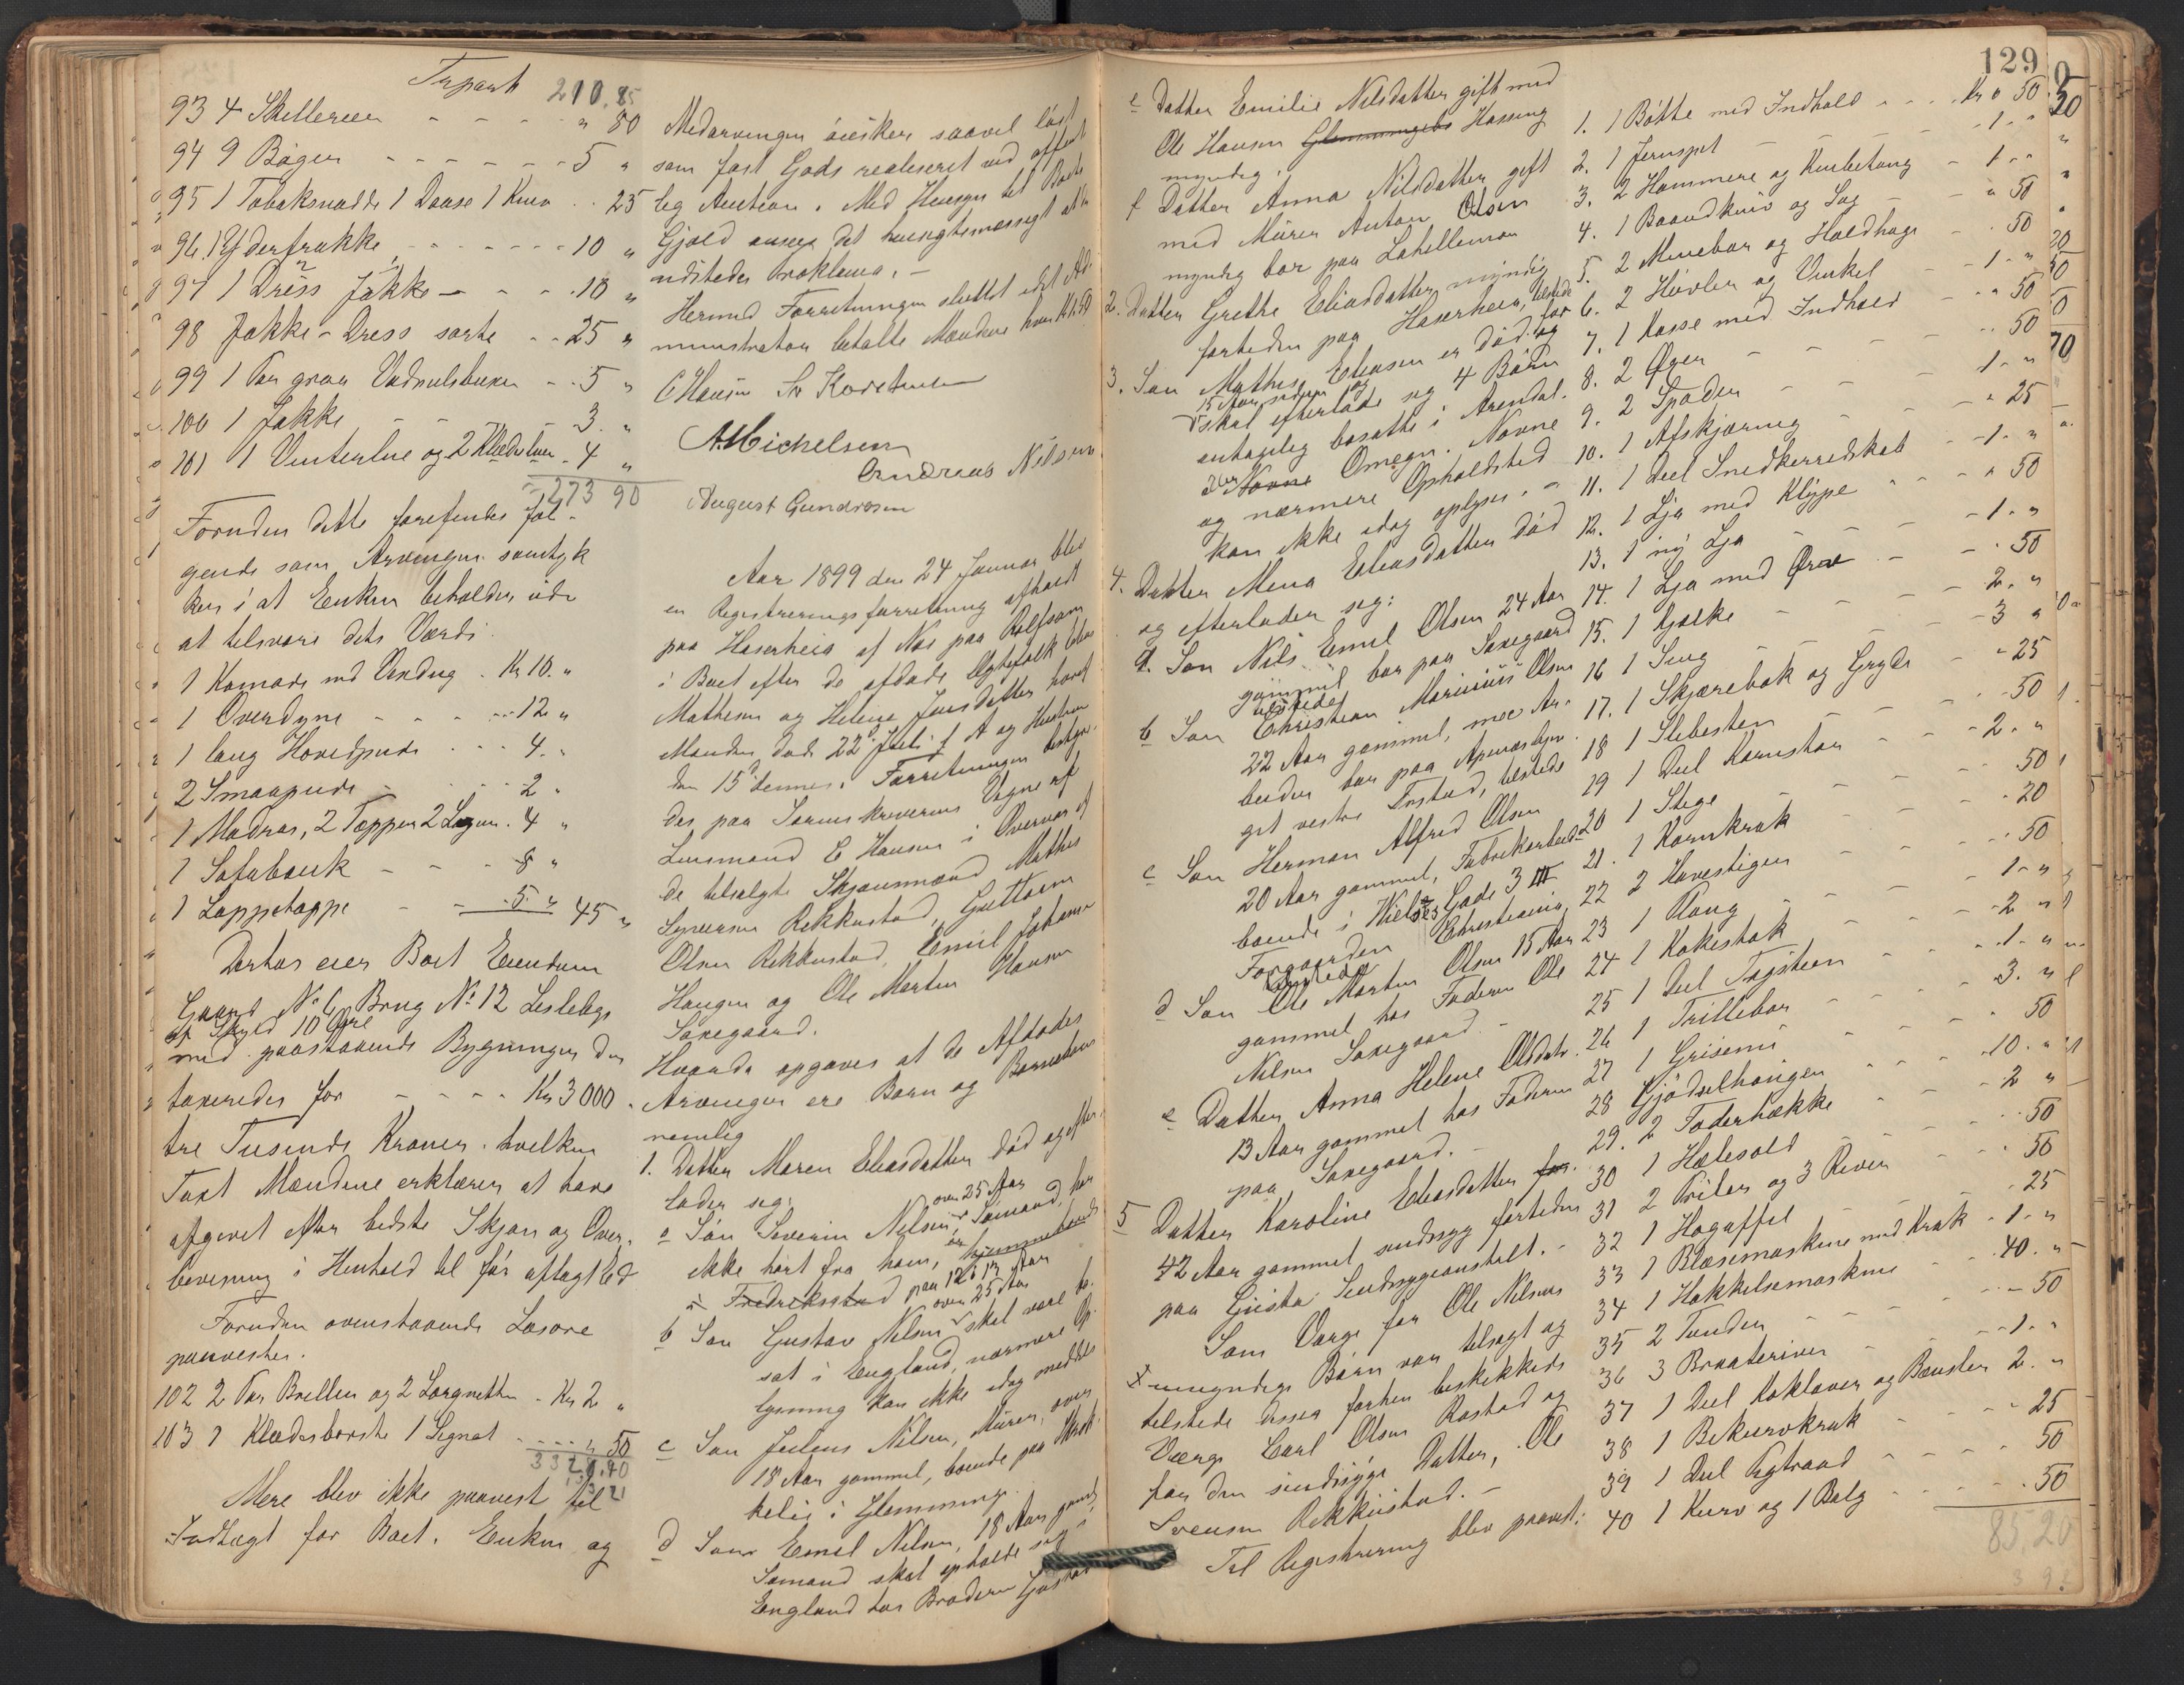 Trpart 210.85
93 4 Skillerier - - - " 80
94 9 Bøger - - - - - - 5 "
95 1 Tobaksnadde 1 Daase 1 Kniv . . 25
96 1 Yderfrakke - - - - - 10 "
97 1 Dress Jakke - - - 10 "
98 Jakke-Dress sorte - - 25 "
99 1 Par graa Vadmelsbuxer - - 5 "
100 1 Jakke - - - 3. "
101 1 Vinterlue og 2 Klædesluer - 4 "
273 90
Foruden dette forefindes føl-
gende som Arvingerne samtyk
ker i at Enken beholder uden
at tilsvare dets Værdi.
1 Komode med Opsdug . Kr 10. "
1 Overdyne - - - - - 12 "
1 lang Hovedpude . . . 4. "
2 Smaapuder - - - 2 "
1 Madras, 2 Tæpper 2 Lagen . 4 "
1 Sofabænk - - - 8 "
1 Lappetæppe - - 5. " 45 "
Derhos eier Boet Eiendom
Gaard No 6, Brug No 12 Leslebgs
af Skyld 10 Øre
med paastaaende Bygninger der
taxeredes for - - - - Kr 3000.
tre Tusinde Kroner. hvilken
Taxt Mændene erklærer at have
afgivet efter bedste Skjøn og Over-
bevisning i Henhold til før aflagt Ed
Foruden ovenstaaende Løsøre
paavistes.
102 2 Par Briller og 2 Lorgnetter . Kr 2 "
103 1 Klædesbørste 1 Signet - - - - " 50
3321.40
Mere blev ikke paavist til
Indtægt for Boet. Enken og
Medarvinger ønsker saavel løst
som fast Gods realiseret ved offent
lig Auction. Med Hensyn til Boets
Gjæld ansees det hensigtsmæssigt at
udstedes Proklama. -
Hermed Forretningen sluttet idet Ad-
ministrator betalte Mændene hver
C Hansen Sv Karstensen
A. Michelsen
Andreas Nilsen
August Gundersen
Aar 1899 den 24 Januar blev
en Registreringsforretning afholdt
paa Haserheia af Næs paa Rolfsøen
i Boet efter de afdøde Ægtefolk Elias
Mathesen og Helene Jensdatter hvoraf
Manden døde 22d Juli f A og Hustruen
den 15d dennes. Forretningen bestyre-
des paa Sorenskriverens Vegne af
Lensmand C Hansen i Overvær af
de tilsagte Skjønsmænd Mathis
Syversen Rekkustad, Guttorm
Olsen Rekkustad, Emil Johansen
Haugen og Ole Martin Hansen
Saxegaard.
Hvorda opgaves at de Afdødes
Arvinger ere Børn og Børnebørn
nemlig
1. Datter Maren Eliasdatter død og efter-
lader sig:
a Søn Severin Nilsen, over 25 Aar Sømand, har
ikke hørt fra ham, er hjemmehørende
i Fredriksstad paa 12 a 13 Aar
b Søn Gustav Nilsen over 25 Aar skal være bo-
sat i England, nærmere Op-
lysning kan ikke idag meddeles
c Søn Julius Nilsen, Murer, over
18 Aar gammel, boende paa Skrok-
kelie i Glemminge.
d Søn Emil Nilsen, 18 Aar gammel
Sømand skal opholde sig i
England hos Broderen Gustav
129
e Datter Emilie Nilsdatter gift med
Ole Hansen Glemmingen Hassing
myndig.
f Datter Anna Nilsdatter gift
med Murer Anton Olsen
myndig bor paa Lahellemoen
2. Datter Grethe Eliasdatter myndig
fortiden paa Haserheia, tilstede
3. Søn Mathis Eliasen er død for
15 Aar siden og
skal efterlade sig 4 Børn
antagelig bosatte i Arendal.
eller Navne Omegn. Navne
og nærmere Opholdsted
kan ikke idag oplyses. -
4. Datter Mina Eliasdatter død
og efterlader sig:
a. Søn Nils Emil Olsen 24 Aar
gammel bor paa Saxegaard
tilstede
b Søn Christian Marinius Olsen
22 Aar gammel, 
beider bor paa Apenæsbyen
get vestre Frstad, tilstede
c Søn Herman Alfred Olsen
20 Aar gammel, Fabrikarbeid.
boende i Nielses Gade 3 III
Forgaarden Christiania,
tilstede
d Søn Ole Martin Olsen 15 Aar
gammel hos Faderen Ole
Nilsen Saxegaard -
e Datter Anna Helene Olsdatr.
13 Aar gammel hos Faderen
paa Saxegaard. -
5 Datter Karoline Eliasdatter for.
42 Aar gammel sindssyg fortiden
paa Gusta Sindssygeanstalt. -
Som Værge for Ole Nilsens
umyndige Børn var tilsagt og
tilstede dessen forhen beskikkede
Værge Carl Olsen Rostad og
for den sindssyge Datter, Ole
Svensen Rekkustad. -
Til Registrering blev paavist:
1. 1 Bøtte med Indhold - - . Kr " 50
2. 1 Jernspet - - - 1 - "
3. 2 Hammere og Knibetang - 1 - "
4. 1 Baandkniv og Sag - - " 50
5. 2 Minebor og Haldhage - . 50
6. 2 Høvler og Vinkel - - 1 - "
7. 1 Kasse med Indhold - - " 50
8. 2 Øxer - - - - . 50
9. 2 Spader - - - - 1 - "
10. 1 Afskjæring - - - " 25
11. 1 Deel Snedkerredskab - - 1 - "
12. 1 Lja med Klype - - " 50
13. 1 ny Lja - - - - 1 - "
14. 1 Lja med Orv - - - . 50
15. 1 Kjælke - - - - 2. "
16 1 Seng - - - - - 3 "
17. 1 Skærebok og Gryde - - 25
18 1 Slibesten - - - 50
19 1 Deel Kornstør - - - 2. "
20 1 Stige - - - - 50
21. 1 Kornkrak - - - 20
22 2 Havestiger - - - . 50
23 1 Plong - - - - 1 - "
24 1 Kokestok - - - 2 "
25 1 Deel Tagsteen - - . 1. "
26 1 Trillebør - - - 3. "
27 1 Griseni - - - . 50
28 Gjødselhougen - - - 10. "
29. 2 Foderhække - - - 2 "
30 1 Hølesold - - - - 50
31 2 Triler og 3 River - - . 50
32 1 Høgaffel - - - . 25
33 1 Blæsemaskine med Krak - 1 - "
34 1 Hakkelsmaskine - . 40. "
35 2 Tønder - - - - 50
36 3 Braateriver - - - 1. "
37 1 Deel Koklover og Bænsler 2. "
38 1 Bekurvkrak - - - 25
39 1 Deel Pigtraad - - - 50
40 1 Kurv og 1 Balg - - . 50
85.20